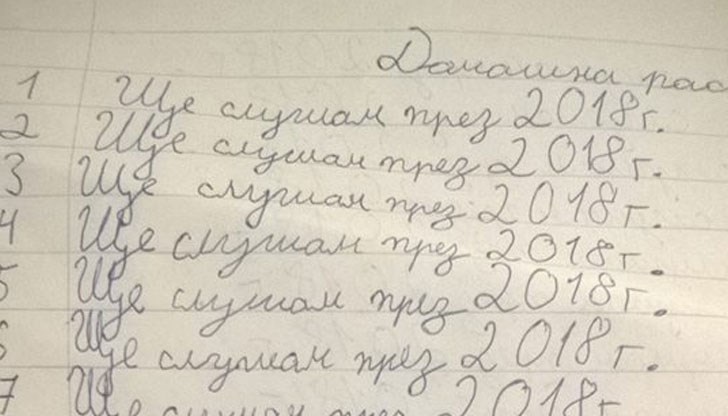 Домашна рас
1 Ще слушам през 2018г.
2 Ще слушам през 2018г.
3 Ще слушам през 2018г.
4 Ще слушам през 2018г.
5 Ще слушам през 2018г.
6 Ще слушам през 2018г.
7 Ще слушам през 2018г